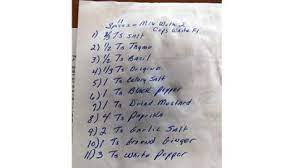 11
Spices - Mix With 2
Cups White Fl
1) 2/3 Ts Salt
2) 1/2 Ts Thyme
3) 1/2 Ts Basil
4) 1/3 Ts Oregino
5) 1 Ts Celery Salt
6) 1 Ts Black Pepper
7) 1 Ts Dried Mustard
8) 4 Ts Paprika
9) 2 Ts Garlic Salt
10) 1 Ts Ground Ginger
11) 3 Ts White Pepper